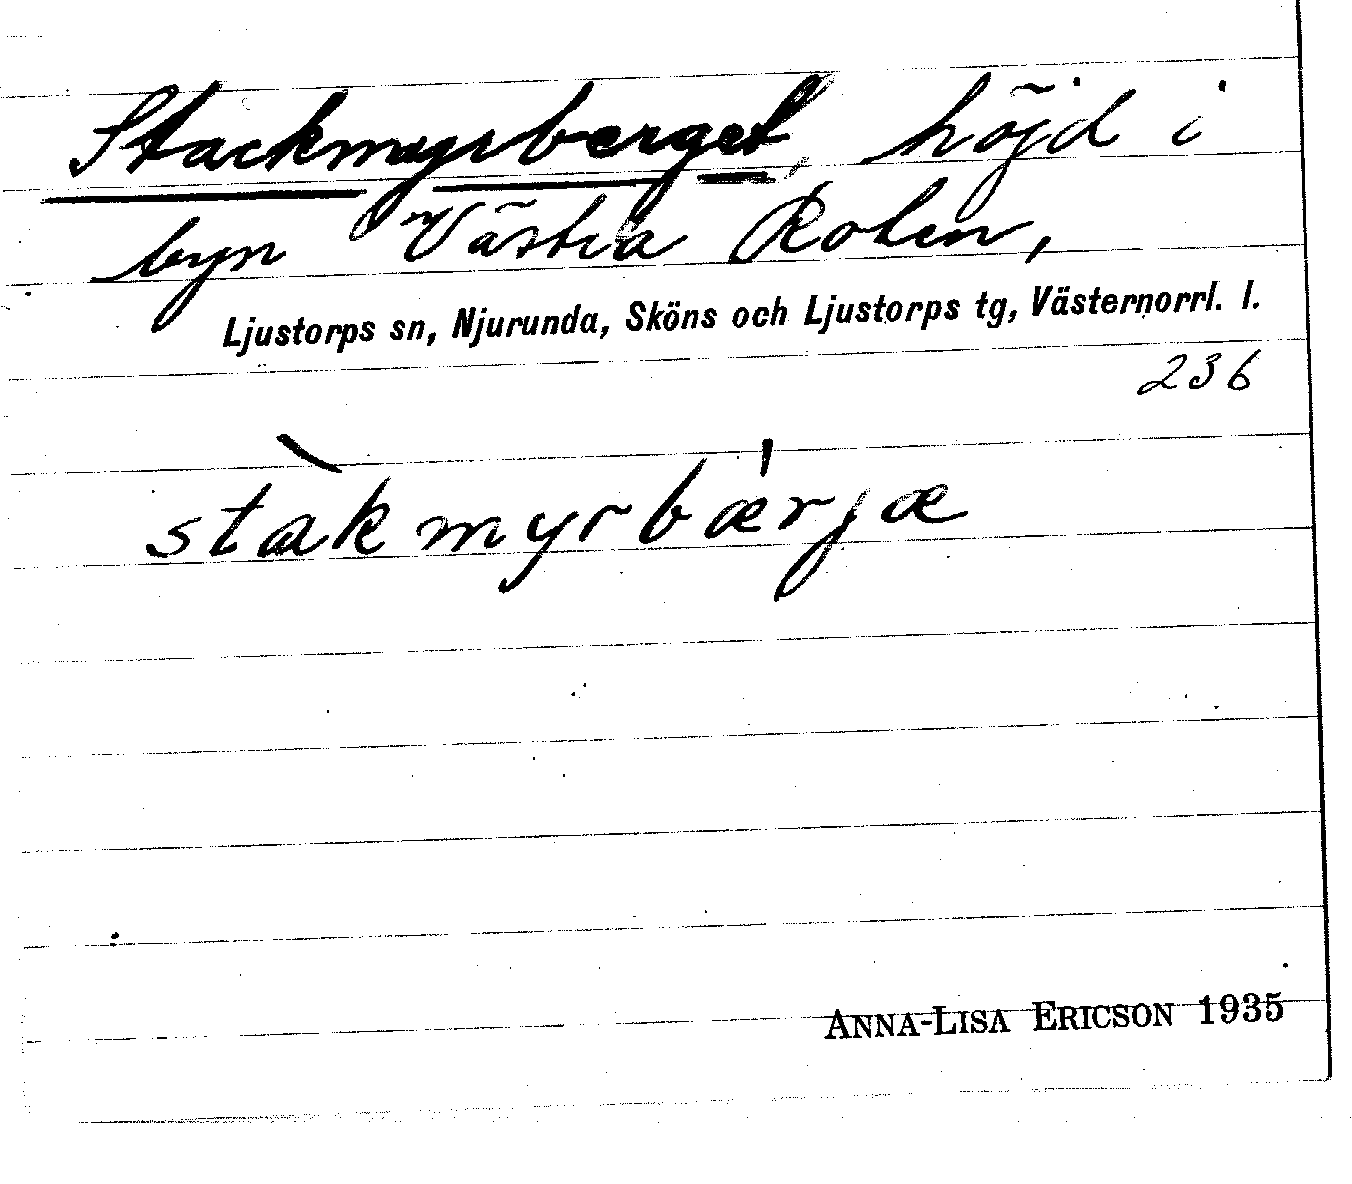 Stackmyrberget, höjd i
byn Västra Rolen,
Ljustorps sn, Njurunda, Sköns och Ljustorps tg, Västernorrl. l.
236
stàkmyrbǽrjæ
ANNA-LISA ERICSON 1935